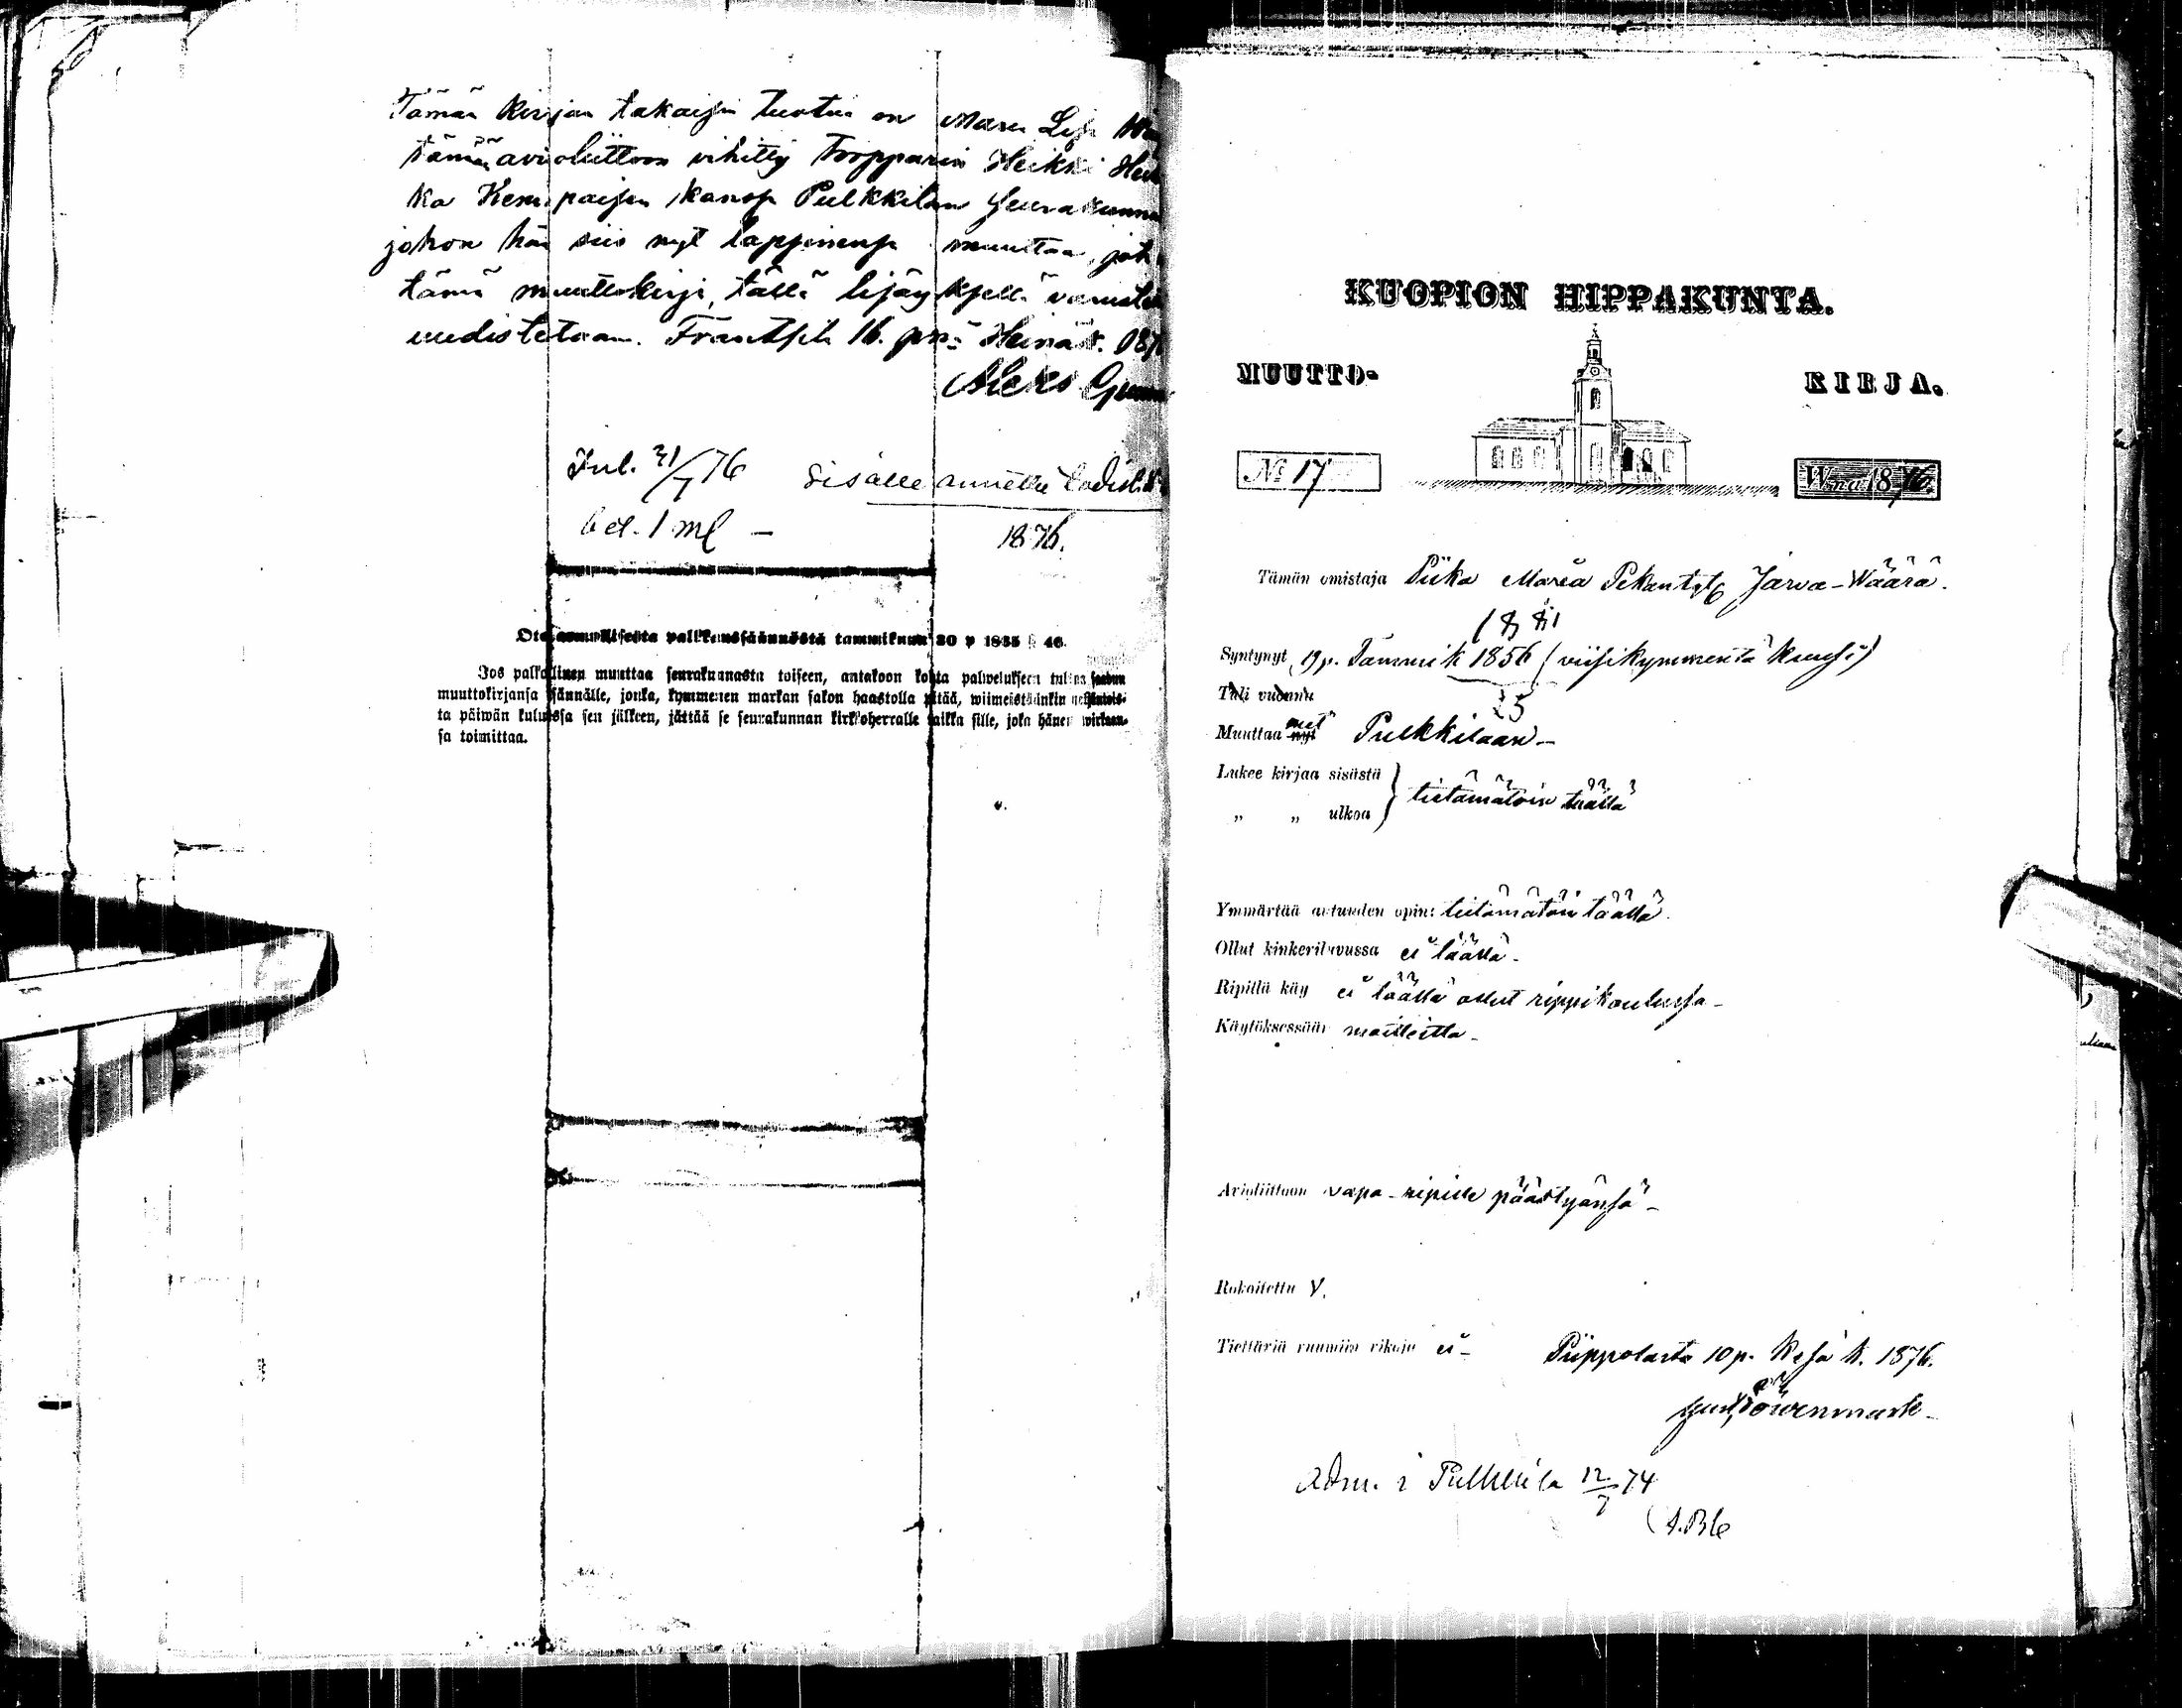 Tämän kirjan takaisin tuotua on Maria Lisa
tämän avioliittoon vihitty Torpparin Heikki
ka Kemppaisen kanssa Pulkkilan seurakunna
johon hän siis nyt lappinensa muuttaa, joh
tämä muuttokirja, tällä lisäyksellä varustet
uudistetaan. Frantsila 16. pnä Heinäk. 187
Aleks
Inl. 31/7 76 Sisälle annettu
bet. 1 ml — 1876.
Ote armollisesta palkkaussäännöstä tammikuun 30 p 1865 § 46.
Jos palkollinen muuttaa seurakunnasta toiseen, antakoon kohta palwelukseen tultua saadun
muuttokirjansa isännälle, jonka, kymmenen markan sakon haastolla pitää, wiimeistäänkin neljäntois-
ta päiwän kuluessa sen jälkeen, jättää se seurakunnan kirkkoherralle taikka sille, joka hänen wirkaan-
sa toimittaa.
KUOPION HIPPAKUNTA.
MUUTTO- KIRJA.
No 17 Wna 1876.
Tämän omistaja Piika Maria Pekantyt. Järvä-Wäärä.
Syntynyt 19 p. Tammik 1856 (viisikymmentä kuusi)
Tuli vuonna
25
Muuttaa nyt Pulkkilaan —
Lukee kirjaa sisästä } tietämätöin täällä
„ „ ulkoa
Ymmärtää autuuden opin: tietämätöin täällä.
Ollut kinkeriluvussa ei täällä —
Ripillä käy ei täällä ollut rippikoulussa —
Käytöksessään moitteitta —
Avioliittoon vapa - ripille päästyänsä —
Rokoitettu V.
Tiettäviä ruumiin vikoja ei — Piippolasta 10 p. Kesä k. 1876.
Adm. i Pulkkila 12/7 74